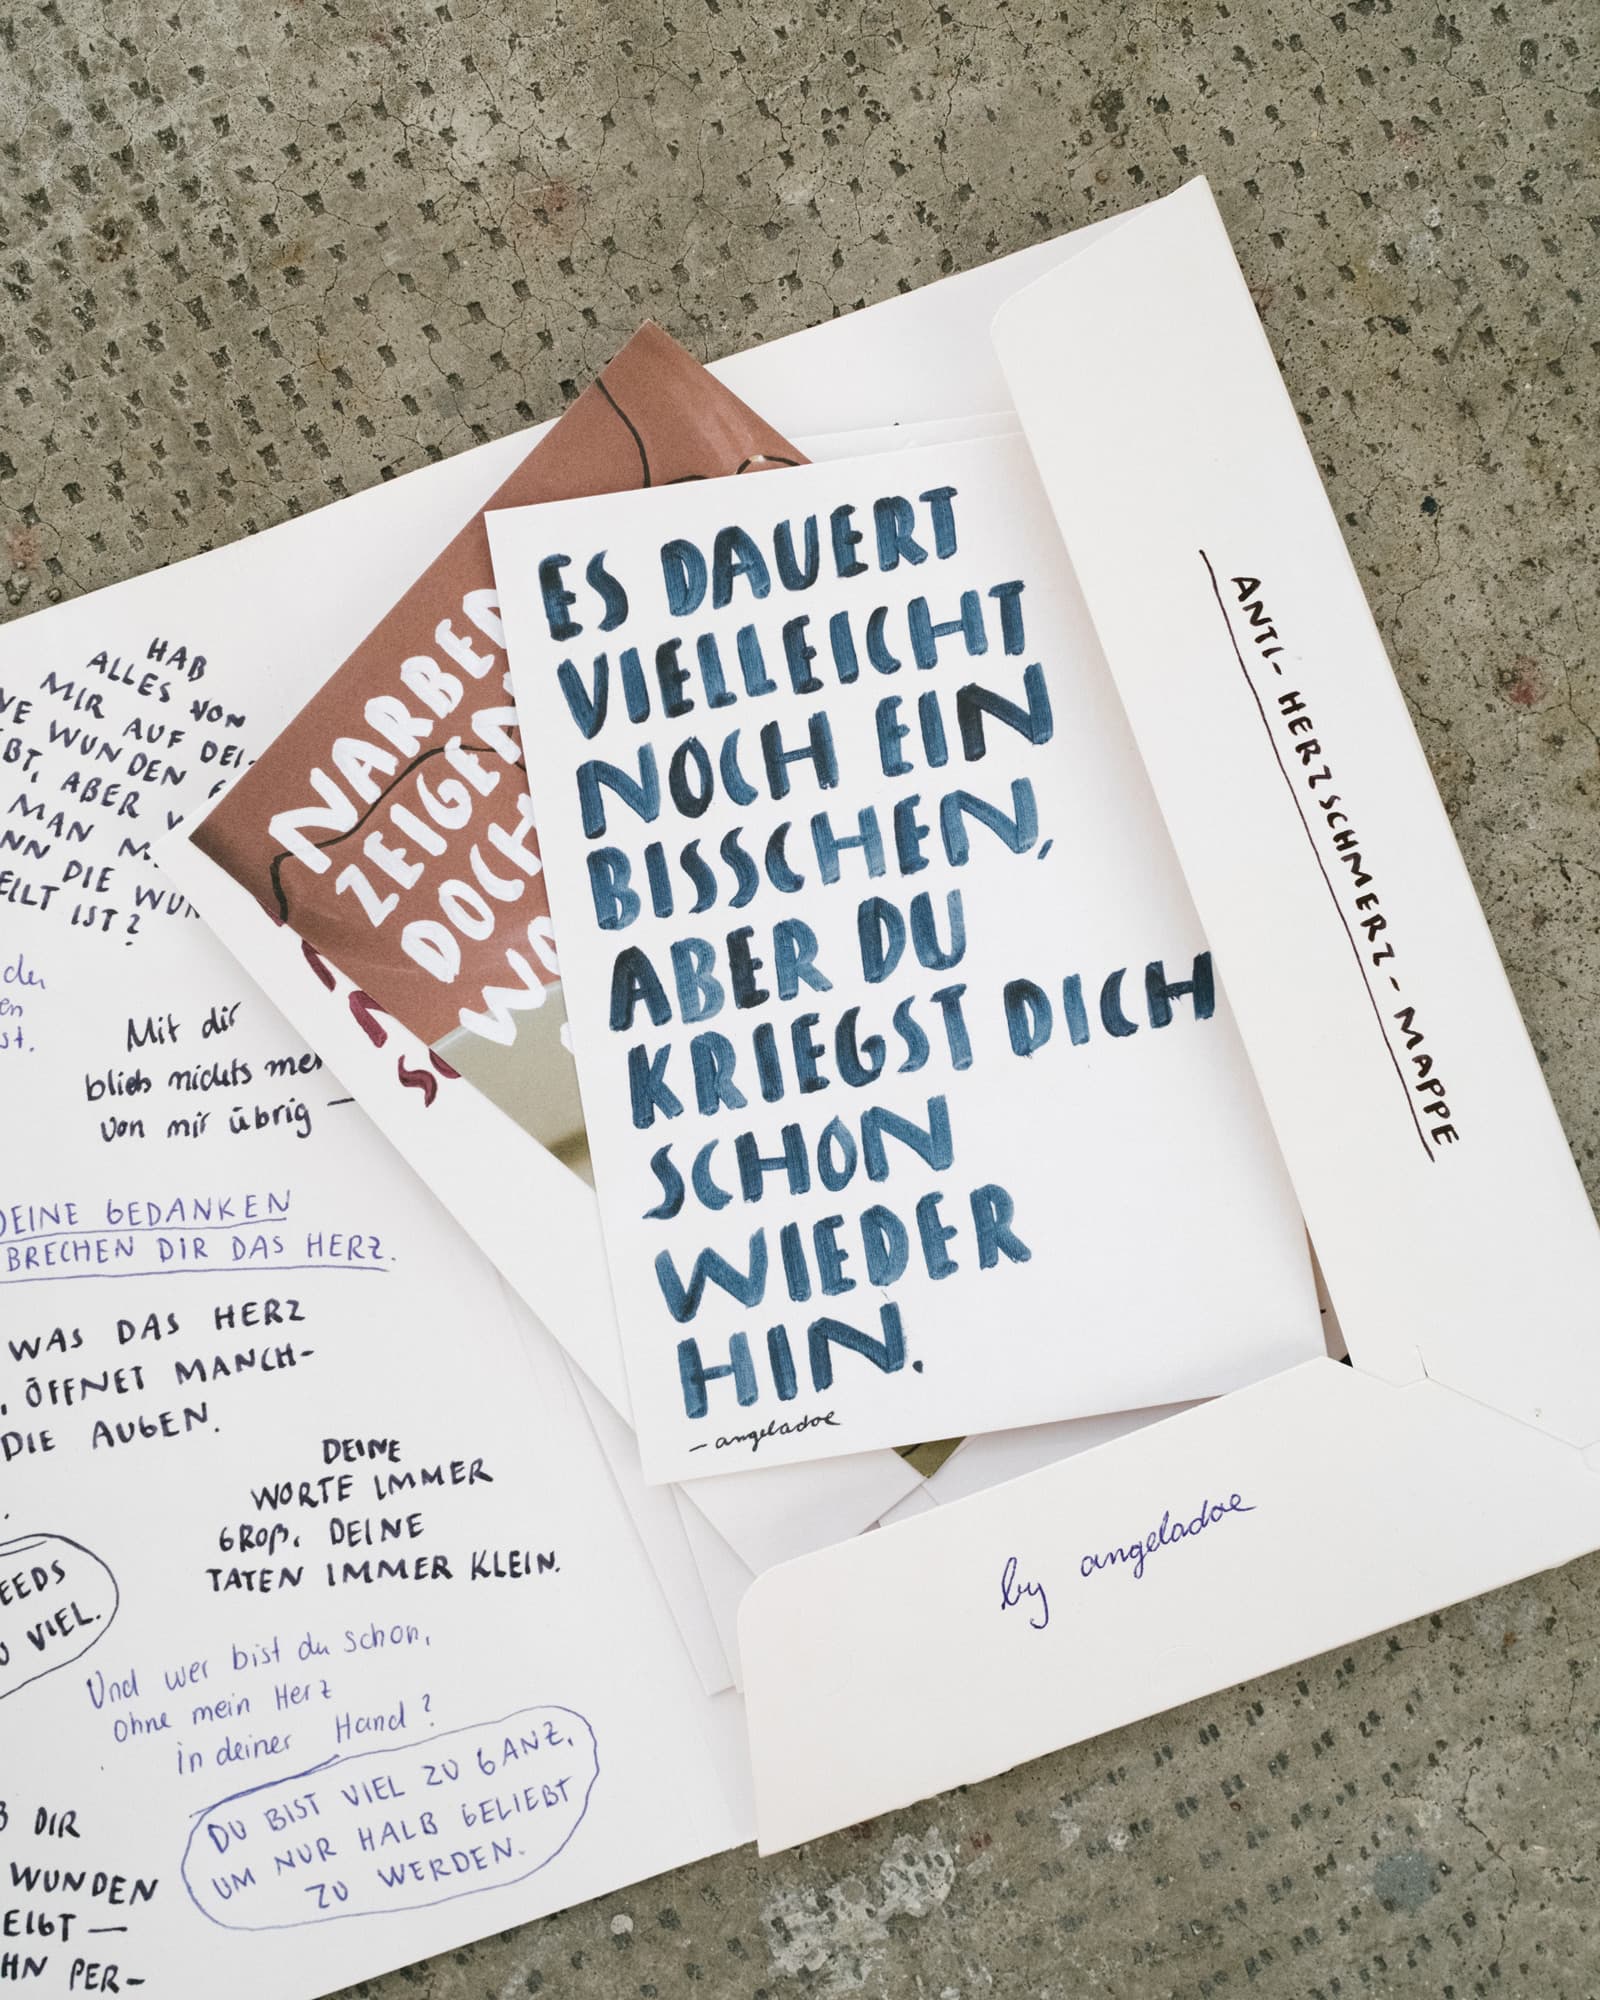 HAB
ALLES VON
MIR AUF DEI-
WUNDEN
ABER
MAN
DIE
IST?
Mit dir
blieb nichts
von mir übrig —
DEINE GEDANKEN
BRECHEN DIR DAS HERZ.
WAS DAS HERZ
ÖFFNET MANCH-
DIE AUGEN.
DEINE
WORTE IMMER
GROß, DEINE
TATEN IMMER KLEIN.
VIEL.
Und wer bist du schon,
ohne mein Herz
in deiner Hand?
DU BIST VIEL ZU GANZ,
UM NUR HALB GELIEBT
ZU WERDEN.
DIR
WUNDEN
PER-
NARBEN
ZEIGEN
DOCH
ES DAUERT
VIELLEICHT
NOCH EIN
BISSCHEN,
ABER DU
KRIEGST DICH
SCHON
WIEDER
HIN.
— angeladoe
ANTI-HERZSCHMERZ-MAPPE
by angeladoe